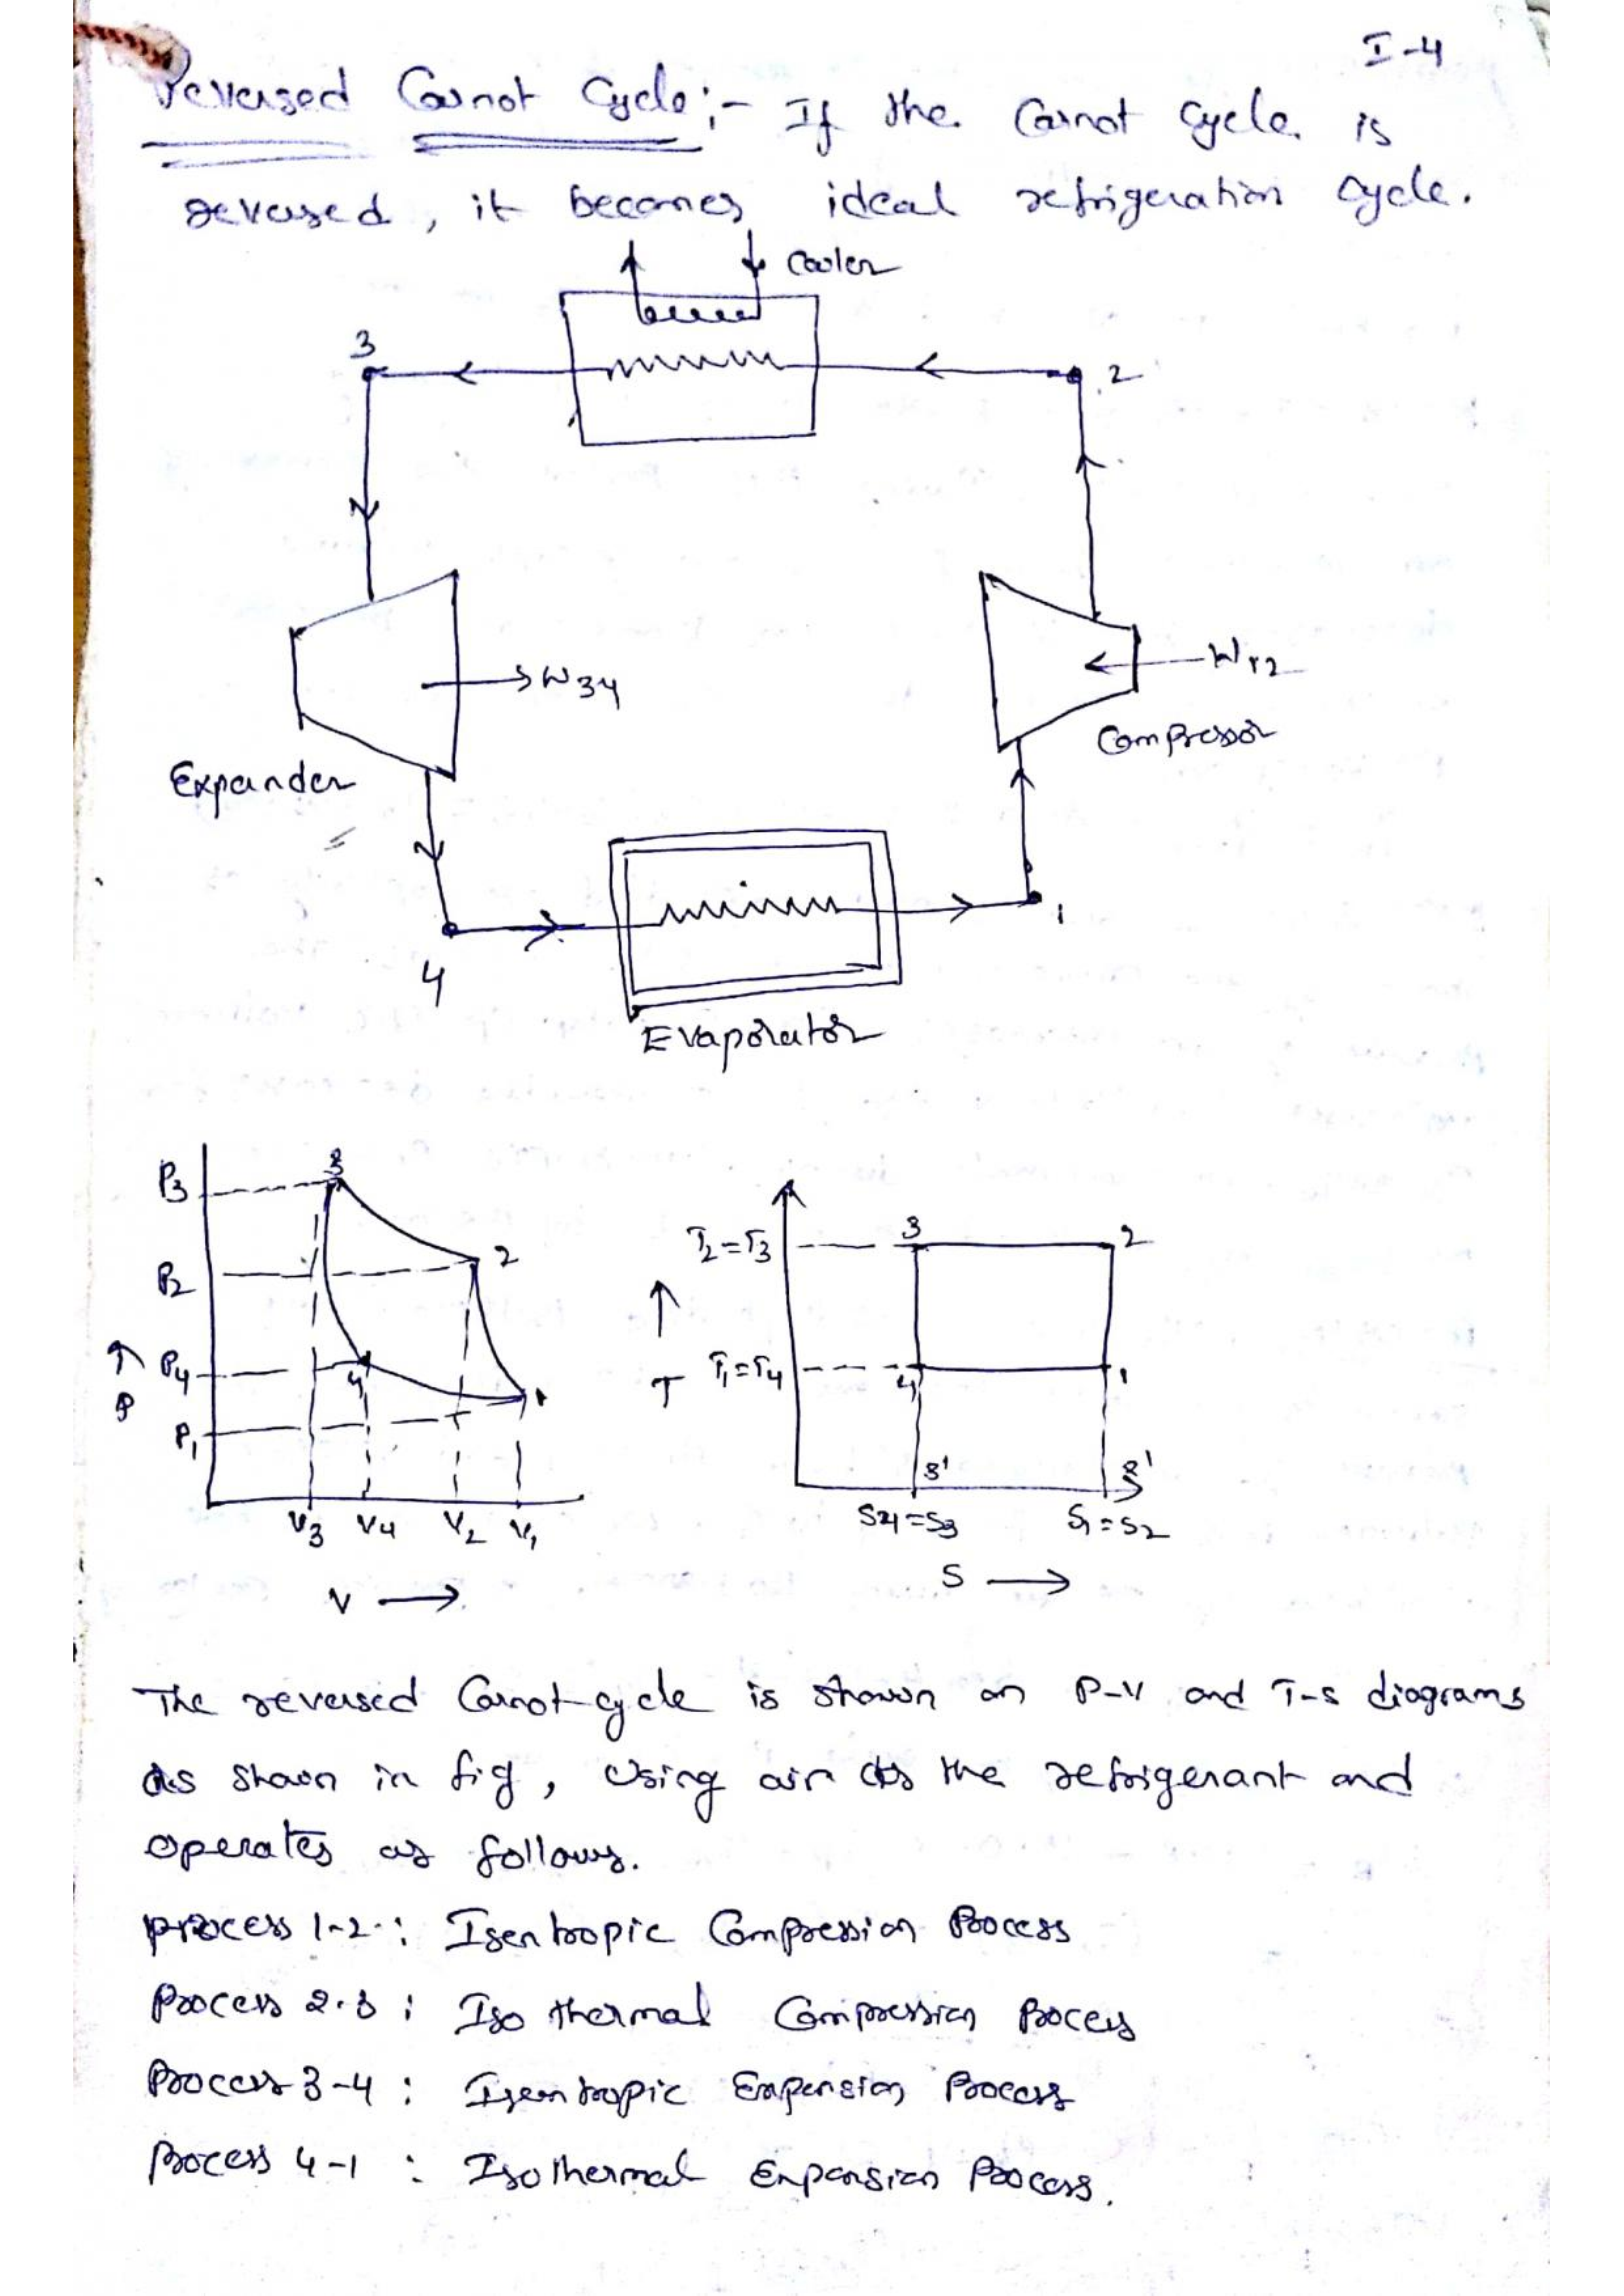 I-4
Reversed Carnot Cycle:- If the Carnot Cycle is
reversed, it becomes ideal refrigeration cycle.
Cooler
3
2
W34
W12
Compressor
Expander
4
1
Evaporator
P3
3
P2
2
P4
4
1
P1
↑ P
V3 V4 V2 V1
V →
T2=T3
3
2
↑ T
T1=T4
4
1
3'
S4=S3
S1=S2
S →
The reversed Carnot cycle is shown on P-V and T-s diagrams
as shown in fig, using air as the refrigerant and
operates as follows.
process 1-2 : Isentropic Compression Process
Process 2-3 : Iso thermal Compression Process
Process 3-4 : Isentropic Expansion Process
Process 4-1 : Isothermal Expansion Process.